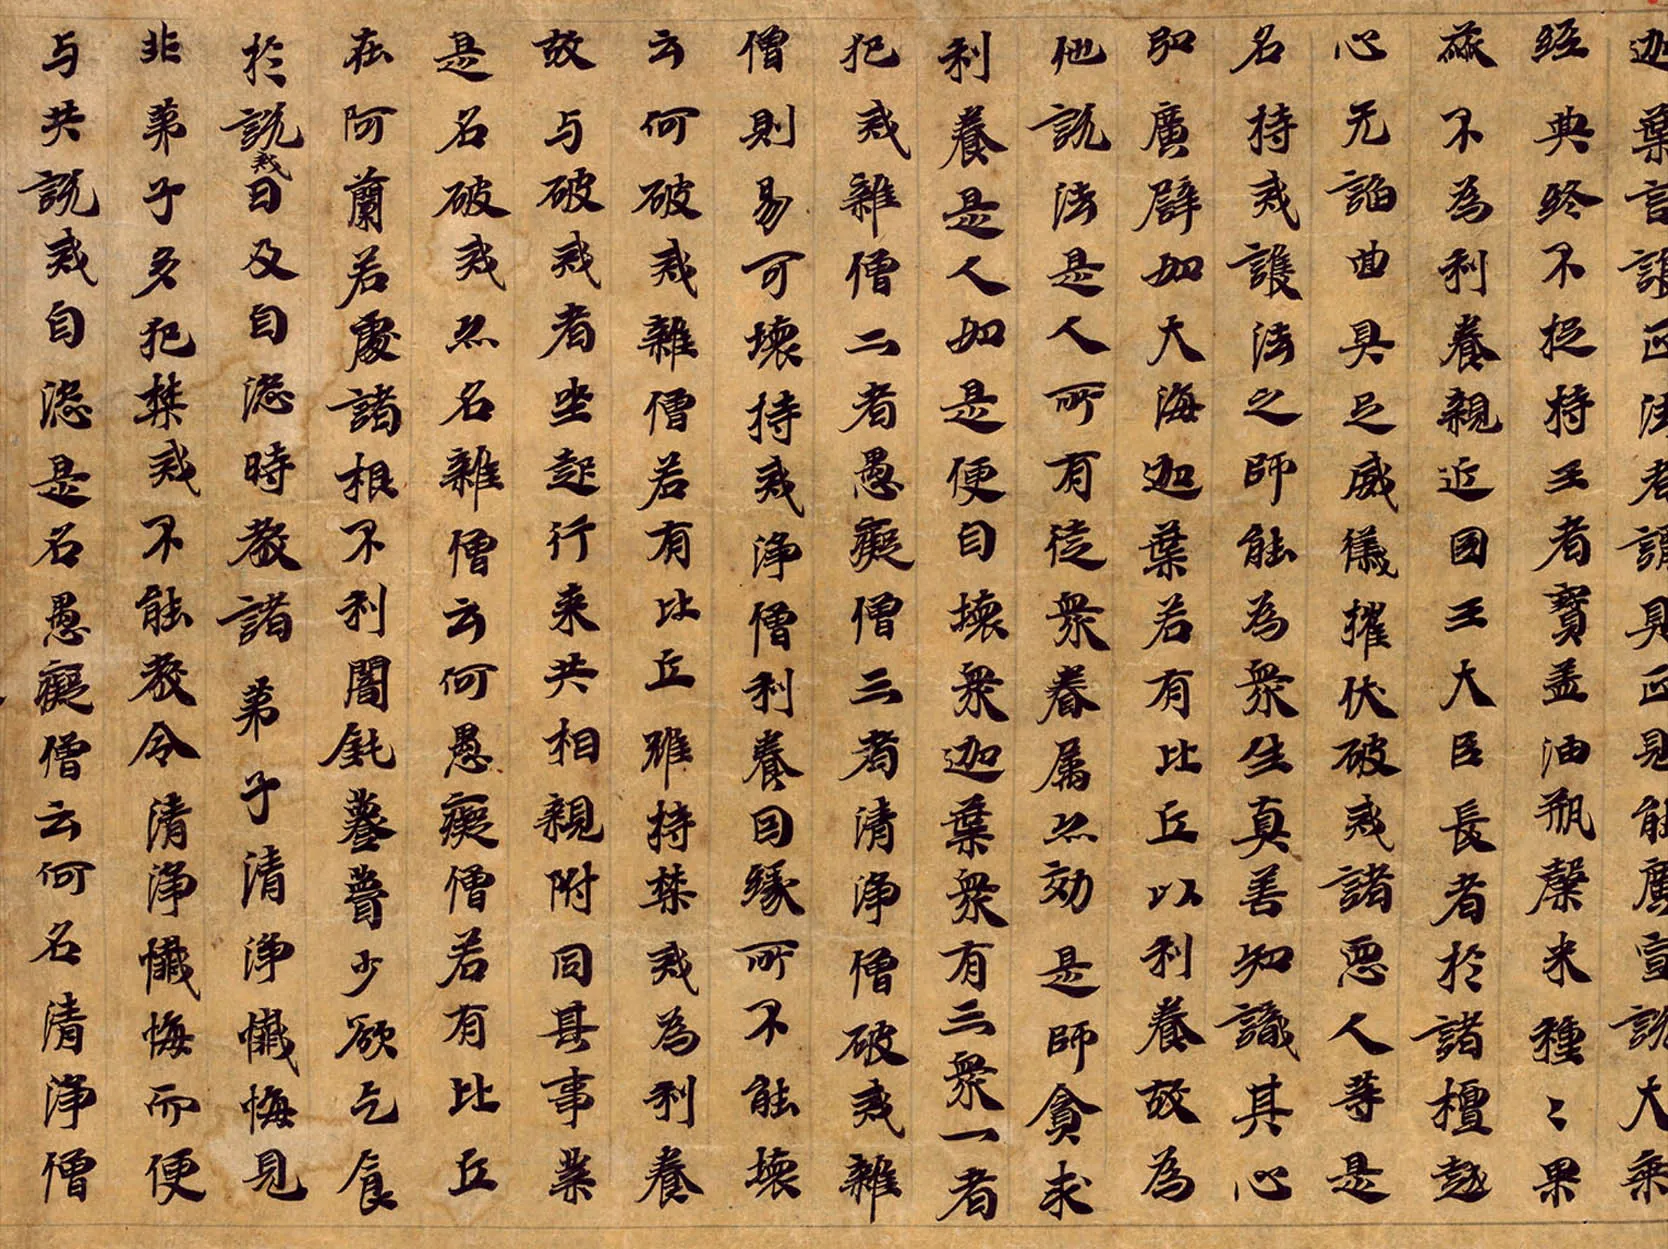 迦葉言護正法者謂具正見能廣宣說大乘
經典終不捉持王者寶盖油瓶穀米種〻果
蓏不為利養親近國王大臣長者於諸檀越
心无諂曲具足威儀摧伏破戒諸惡人等是
名持戒護法之師能為衆生真善知識其心
弘廣譬如大海迦葉若有比丘以利養故為
他說法是人所有徒衆眷属亦効是師貪求
利養是人如是便自壞衆迦葉衆有三衆一者
犯戒雜僧二者愚癡僧三者清淨僧破戒雜
僧則易可壞持戒淨僧利養因緣所不能壞
云何破戒雜僧若有比丘雖持禁戒為利養
故与破戒者坐起行来共相親附同其事業
是名破戒亦名雜僧云何愚癡僧若有比丘
在阿蘭若處諸根不利闇鈍𦽯瞢少欲乞食
於說戒日及自恣時教諸弟子清淨懺悔見
非弟子多犯禁戒不能教令清淨懺悔而便
与共說戒自恣是名愚癡僧云何名清淨僧